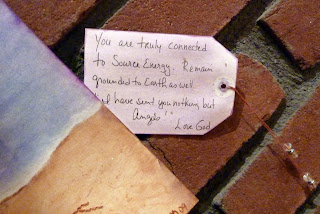 You are truly connected
to Source Energy. Remain
grounded to Earth as well.
I have sent you nothing but
Angels!"
Love God